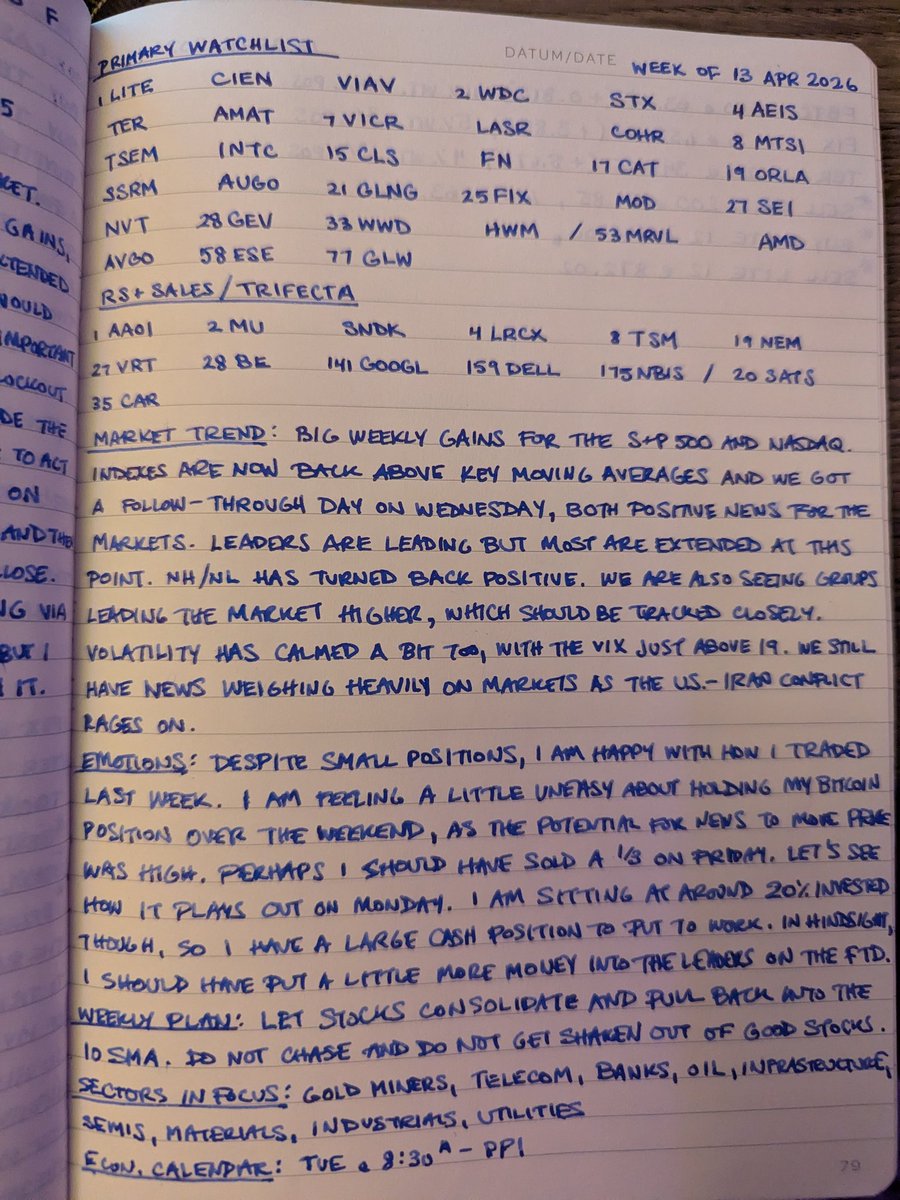 F
PRIMARY WATCHLIST
DATUM/DATE WEEK OF 13 APR 2026
1 LITE CIEN VIAV 2 WDC STX 4 AEIS
TER AMAT 7 VICR LASR COHR 8 MTSI
TSEM INTC 15 CLS FN 17 CAT 19 ORLA
SSRM AUGO 21 GLNG 25 FIX MOD 27 SEI
NVT 28 GEV 33 WWD HWM / 53 MRVL AMD
AVGO 58 ESE 77 GLW
RS + SALES / TRIFECTA
1 AAOI 2 MU SNDK 4 LRCX 8 TSM 19 NEM
27 VRT 28 BE 141 GOOGL 159 DELL 175 NBIS / 20 SATS
35 CAR
MARKET TREND: BIG WEEKLY GAINS FOR THE S+P 500 AND NASDAQ.
INDEXES ARE NOW BACK ABOVE KEY MOVING AVERAGES AND WE GOT
A FOLLOW-THROUGH DAY ON WEDNESDAY, BOTH POSITIVE NEWS FOR THE
MARKETS. LEADERS ARE LEADING BUT MOST ARE EXTENDED AT THIS
POINT. NH/NL HAS TURNED BACK POSITIVE. WE ARE ALSO SEEING GROUPS
LEADING THE MARKET HIGHER, WHICH SHOULD BE TRACKED CLOSELY.
VOLATILITY HAS CALMED A BIT TOO, WITH THE VIX JUST ABOVE 19. WE STILL
HAVE NEWS WEIGHING HEAVILY ON MARKETS AS THE US.-IRAN CONFLICT
RAGES ON.
EMOTIONS: DESPITE SMALL POSITIONS, I AM HAPPY WITH HOW I TRADED
LAST WEEK. I AM FEELING A LITTLE UNEASY ABOUT HOLDING MY BITCOIN
POSITION OVER THE WEEKEND, AS THE POTENTIAL FOR NEWS TO MOVE PRICE
WAS HIGH. PERHAPS I SHOULD HAVE SOLD A 1/3 ON FRIDAY. LET'S SEE
HOW IT PLAYS OUT ON MONDAY. I AM SITTING AT AROUND 20% INVESTED
THOUGH, SO I HAVE A LARGE CASH POSITION TO PUT TO WORK. IN HINDSIGHT,
I SHOULD HAVE PUT A LITTLE MORE MONEY INTO THE LEADERS ON THE FTD.
WEEKLY PLAN: LET STOCKS CONSOLIDATE AND PULL BACK INTO THE
10 SMA. DO NOT CHASE AND DO NOT GET SHAKEN OUT OF GOOD STOCKS.
SECTORS IN FOCUS: GOLD MINERS, TELECOM, BANKS, OIL, INFRASTRUCTURE,
SEMIS, MATERIALS, INDUSTRIALS, UTILITIES
ECON. CALENDAR: TUE @ 8:30 A - PPI
79
5
GAINS,
WOULD
IMPORTANT
LOCKOUT
DE THE
TO ACT
ON
AND THEN
CLOSE.
NG VIA
BUT I
IT.